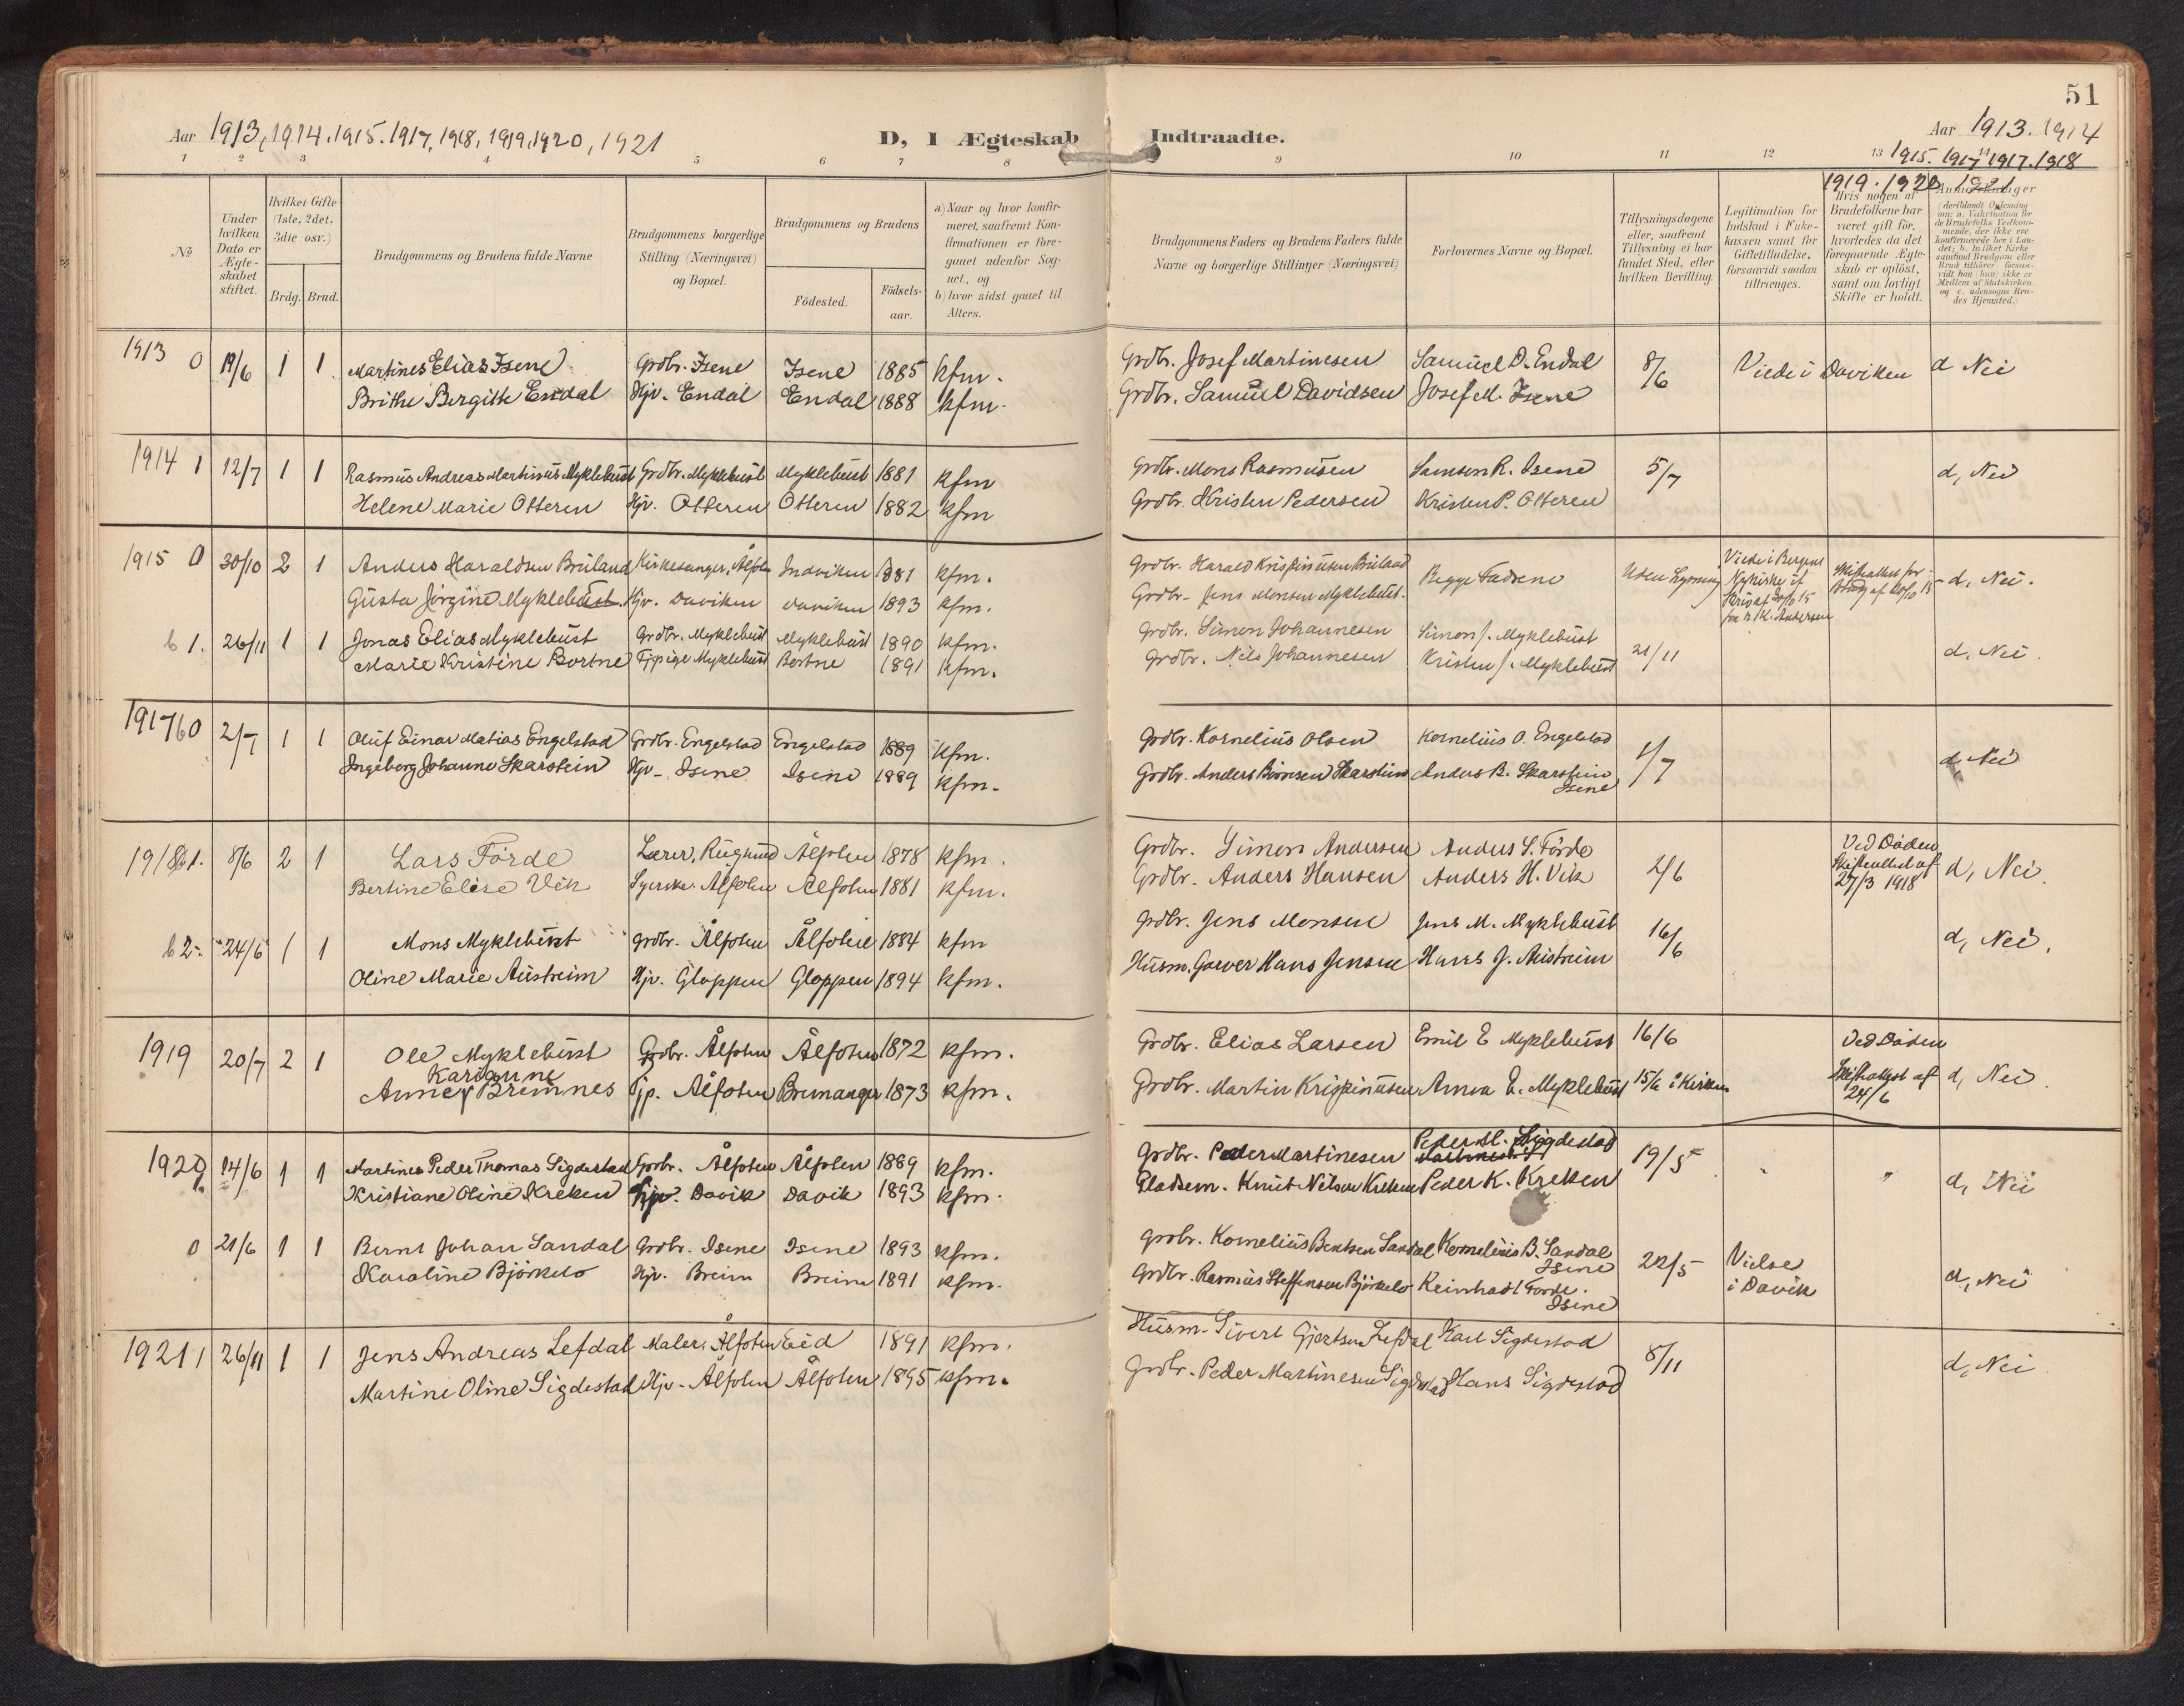 51
Aar 1913, 1914. 1915. 1917, 1918, 1919, 1920, 1921
D, I Ægteskab Indtraadte.
Aar 1913. 1914
1915. 1917 1917. 1918
1919. 1920 1921
1 2 3 4 5 6 7 8 9 10 11 12 13 14
No
Under hvilken Dato er Ægteskabet stiftet.
Hvilket Gifte (1ste, 2det, 3die osv.)
Brdg. Brud.
Brudgommens og Brudens fulde Navne
Brudgommens borgerlige Stilling (Næringsvei) og Bopæl.
Brudgommens og Brudens
Födested.
Födsels-aar.
a) Naar og hvor konfirmeret, saafremt Konfirmationen er foregaaet udenfor Sognet, og
b) hvor sidst gaaet til Alters.
Brudgommens Faders og Brudens Faders fulde Navne og borgerlige Stillinger (Næringsvei)
Forlovernes Navne og Bopæl.
Tillysningsdagene eller, saafremt Tillysning ei har fundet Sted, efter hvilken Bevilling.
Legitimation for Indskud i Enkekassen samt for Giftetilladelse, forsaavidt saadan tiltrænges.
Hvis nogen af Brudefolkene har været gift för, hvorledes da det foregaaende Ægteskab er oplöst, samt om lovligt Skifte er holdt.
Anmærkninger (deriblandt Oplysning om: a. Vakcination for de Brudefolks Vedkommende, der ikke ere konfirmerede her i Landet; b. hvilket Kirkesamfund Brudgom eller Brud tilhører, forsaavidt han (hun) ikke er Medlem af Statskirken, og c. udensogns Brudes Hjemsted.)
1913 0 19/6 1 1 Martines Elias Isene Grdbr. Isene Isene 1885 kfm. Grdbr. Josef Martinesen Samuel D. Endal 8/6 Viede i Daviken d Nei
Brithe Bergitte Endal Hjv. Endal Endal 1888 kfm. Grdbr. Samuel Davidsen Josef M. Isene
1914 1 12/7 1 1 Rasmus Andreas Martinus Myklebust Grdbr. Myklebust Myklebust 1881 kfm Grdbr. Mons Rasmusen Samson R. Isene 5/7 d, Nei
Helene Marie Otteren Hjv. Otteren Otteren 1882 kfm Grdbr. Kristen Pedersen Kristen P. Otteren
1915 0 30/10 2 1 Anders Haraldsen Bruland Kirkesanger, Ålfoten Indviken 1881 kfm. Grdbr. Harald Krispinusen Bruland Uden Lysning Viede i Bergens Nykirke d, Nei.
Gusta Jörgine Myklebust. Hjv. Daviken Daviken 1893 kfm. Grdbr. Jens Monsen Myklebust.
b 1. 26/11 1 1 Jonas Elias Myklebust Grdbr. Myklebust Myklebust 1890 kfm. Grdbr. Simon Johannesen Simon J. Myklebust 21/11 d. Nei.
Marie Kristine Bortne Tjpige Myklebust Bortne 1891 kfm. Grdbr. Nils Johannesen Kristen J. Myklebust
1917 b 0 2/7 1 1 Oluf Einar Matias Engelstad Grdbr. Engelstad Engelstad 1889 kfm. Grdbr. Kornelius Olsen Kornelius O. Engelstad 1/7 d, Nei
Ingeborg Johanne Skarstein Hjv. Isene Isene 1889 kfm. Grdbr. Anders Skarstein Anders B. Skarstein, Isene
1918 1. 8/6 2 1 Lars Förde Lærer, Rugsund Ålfoten 1878 kfm. Grdbr. Simon Andersen Anders S. Förde 2/6 Ved Döden Skifteattest af 27/3 1918 d, Nei.
Bertine Elise Vik Syerske. Ålfoten Ålfoten 1881 kfm. Grdbr. Anders Hansen Anders H. Vik
b 2. 24/6 1 1 Mons Myklebust Grdbr. Ålfoten Ålfoten 1884 kfm Grdbr. Jens Monsen Jens M. Myklebust 16/6 d, Nei.
Oline Marie Austreim Hjv. Gloppen Gloppen 1894 kfm. Husm. Garver Hans Jensen Hans J. Austreim
1919 20/7 2 1 Ole Myklebust Grdbr. Ålfoten Ålfoten 1872 kfm. Grdbr. Elias Larsen Emil E Myklebust 16/6 Ved Döden d, Nei.
Anne Karianne Bremnes Tjp. Ålfoten Bremanger 1873 kfm. Grdbr. Martin Krispinusen Anna E. Myklebust 15/6 i Kirken Skifteattest af 24/6
1920 14/6 1 1 Martines Peder Thomas Sigdestad Grdbr. Ålfoten Ålfoten 1889 kfm. Grdbr. Peder Martinesen Peder M. Sigdestad 19/5 " d, Nei
Kristiane Oline Kreken Hjv. Davik Davik 1893 kfm. Pladsem. Knut Nilsen Kreken Peder K. Kreken
0 21/6 1 1 Bernt Johan Sandal Grdbr. Isene Isene 1893 kfm. Grdbr. Kornelius Bentsen Sandal Kornelius B. Sandal Isene 22/5 Vielse i Davik d, Nei
Karoline Björkelo Hjv. Breim Breim 1891 kfm. Grdbr. Rasmus Steffensen Björkelo Reinhadt Förde. Isene
1921 1 26/11 1 1 Jens Andreas Lefdal Maler, Ålfoten Eid 1891 kfm. Husm. Sivert Gjertsen Lefdal Karl Sigdestad 8/11 d, Nei
Martine Oline Sigdestad Hjv. Ålfoten Ålfoten 1895 kfm. Grdbr. Peder Martinesen Sigdestad Hans Sigdestad